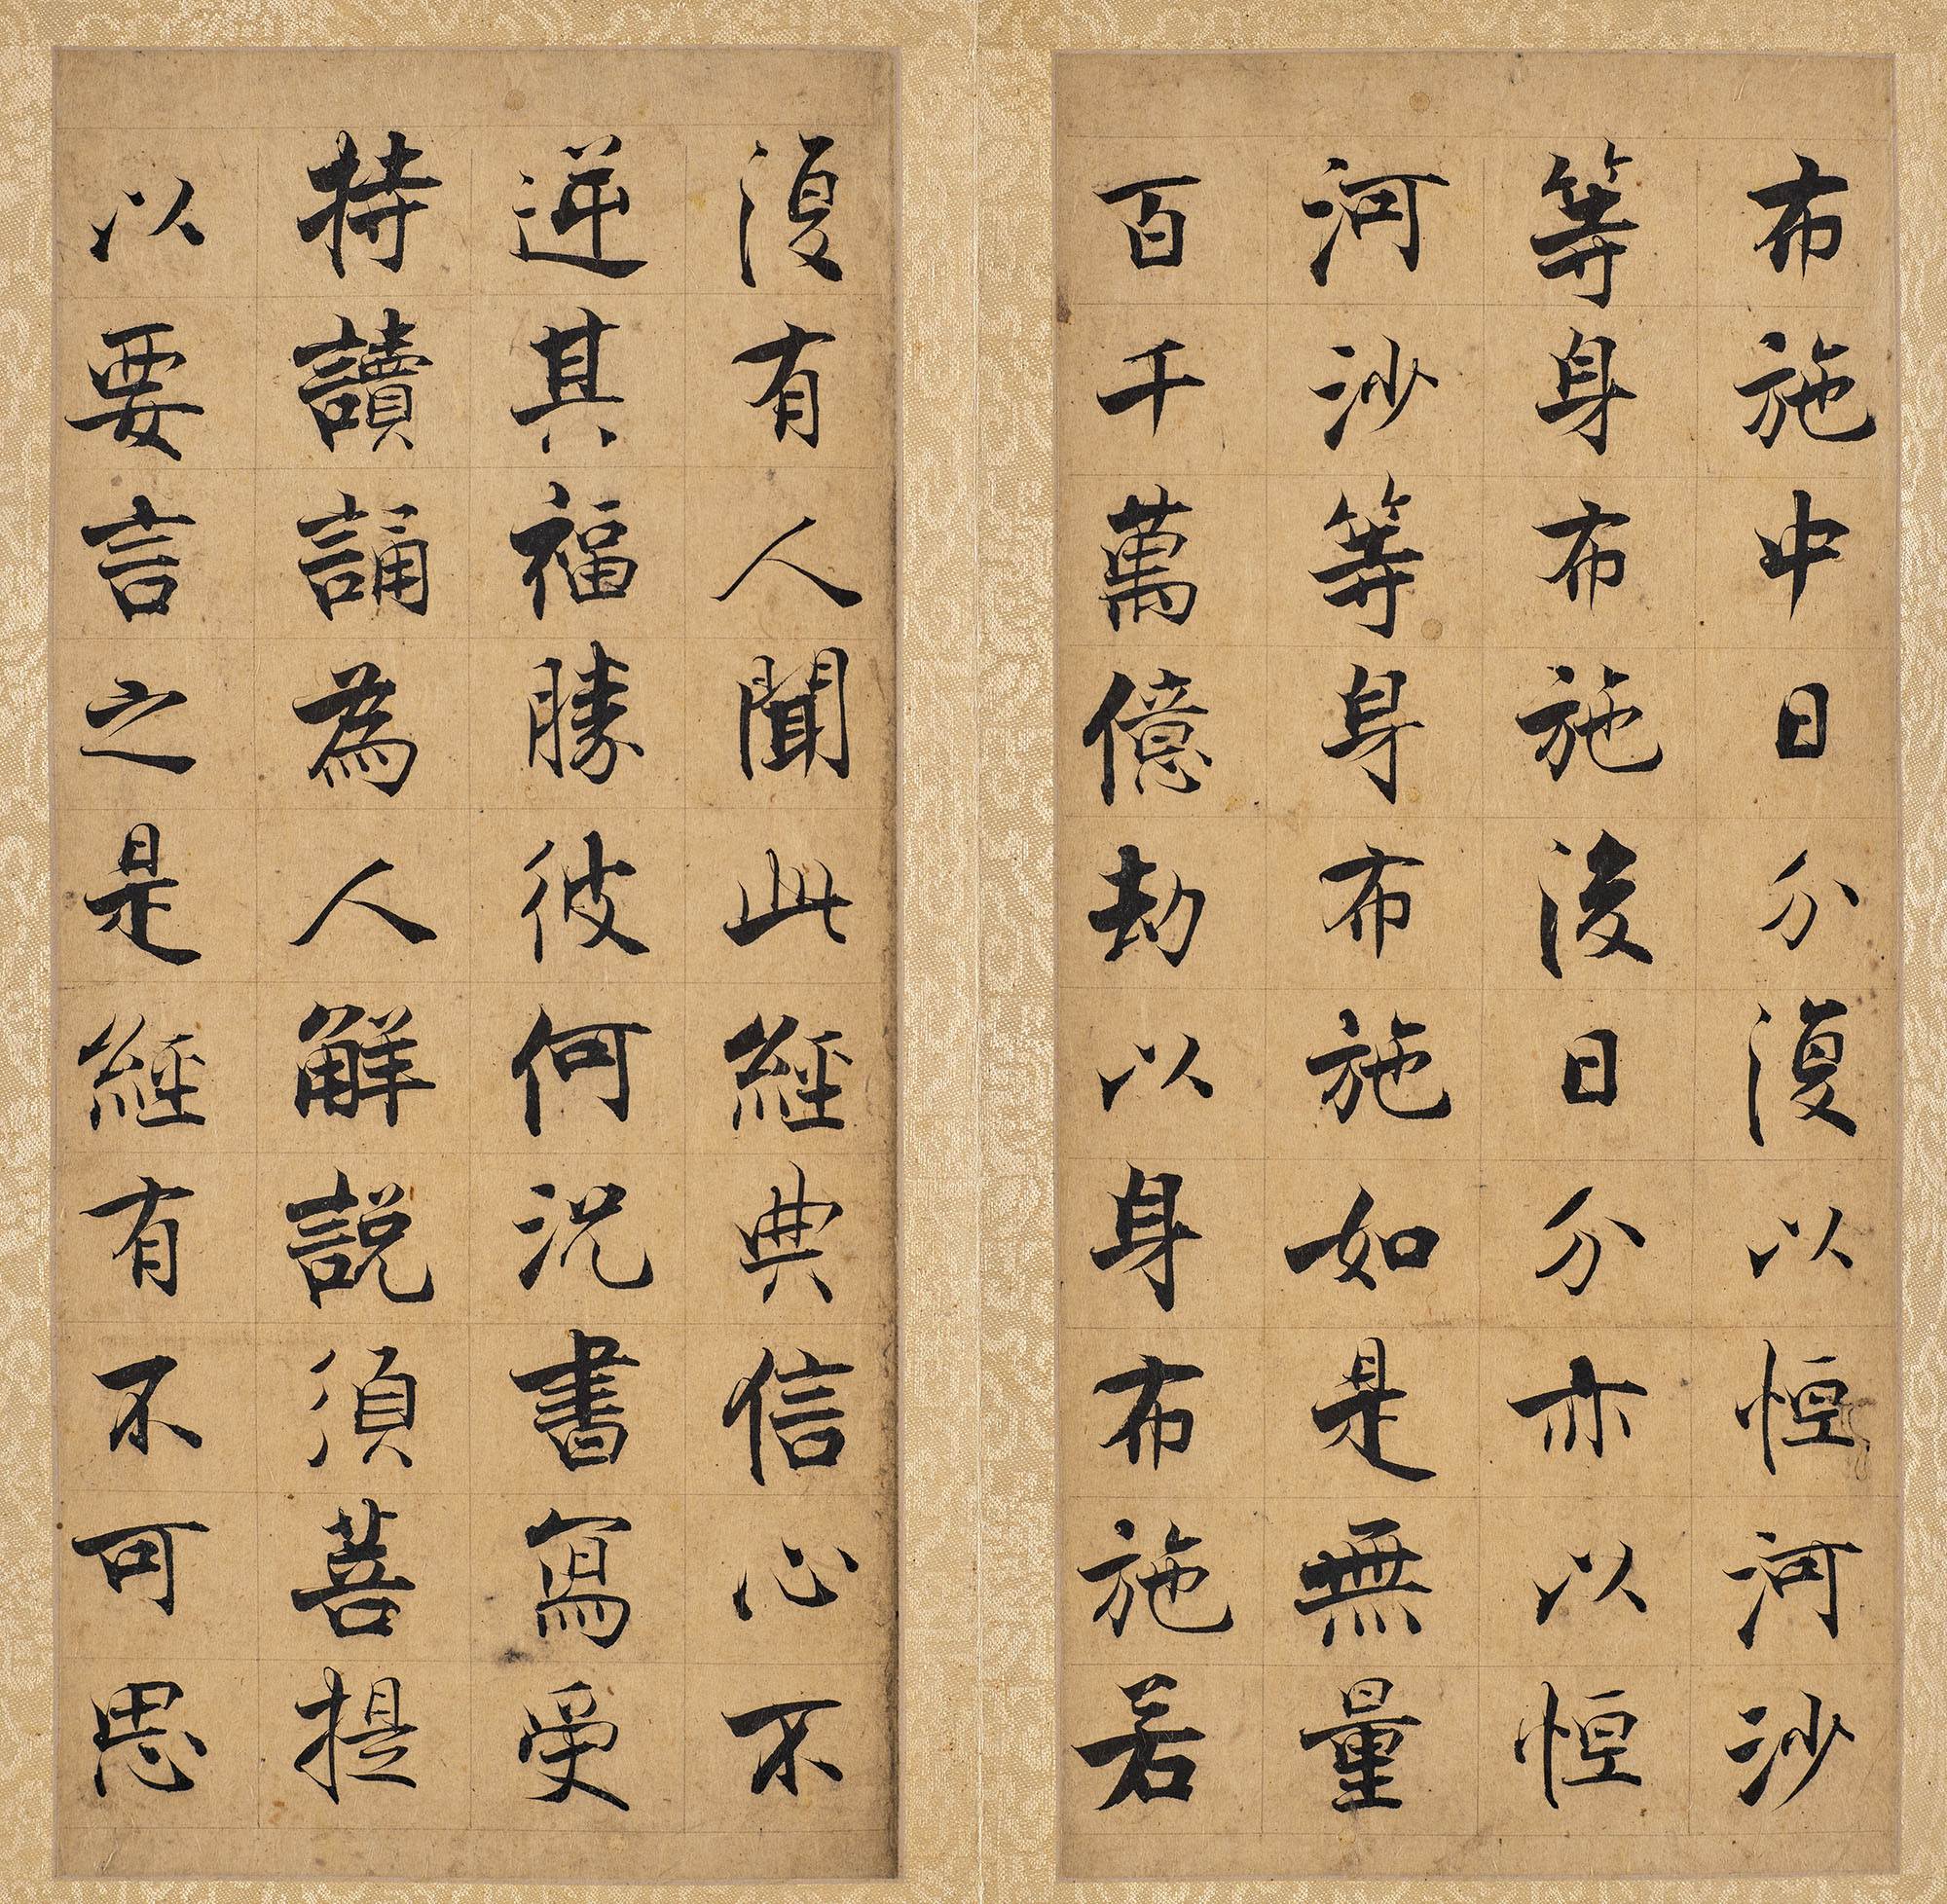 布施中日分復以恒河沙
等身布施後日分亦以恒
河沙等身布施如是無量
百千萬億劫以身布施若
復有人聞此經典信心不
逆其福勝彼何況書寫受
持讀誦為人解說須菩提
以要言之是經有不可思